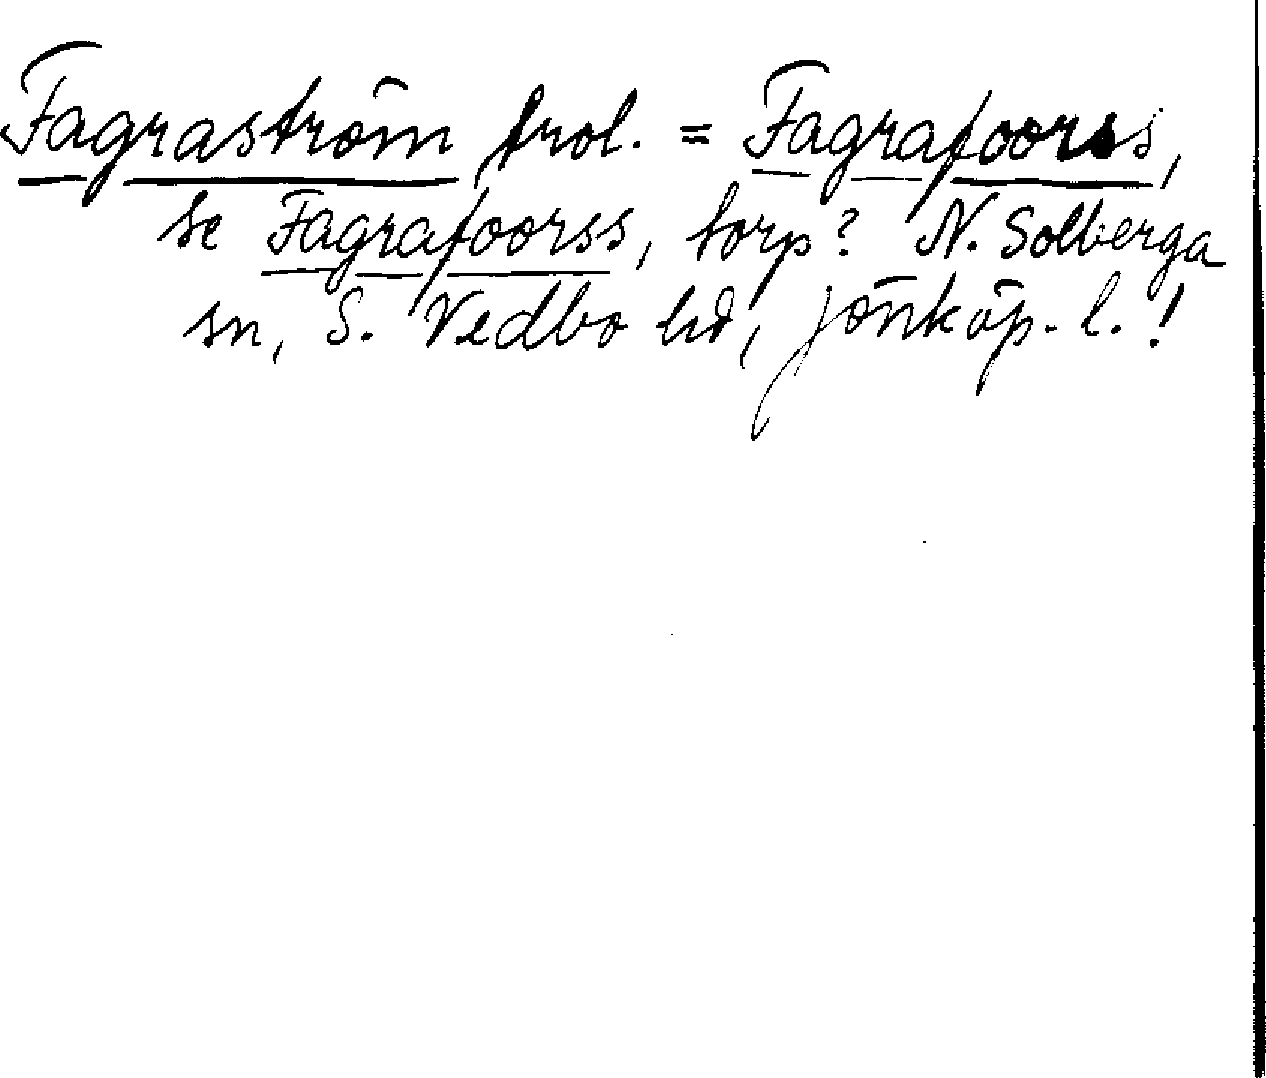 Fagraström trol. = Fagrafoorss,
se Fagrafoorss, torp? N. Solberga
sn, S. Vedbo hd, Jönköp. l. !